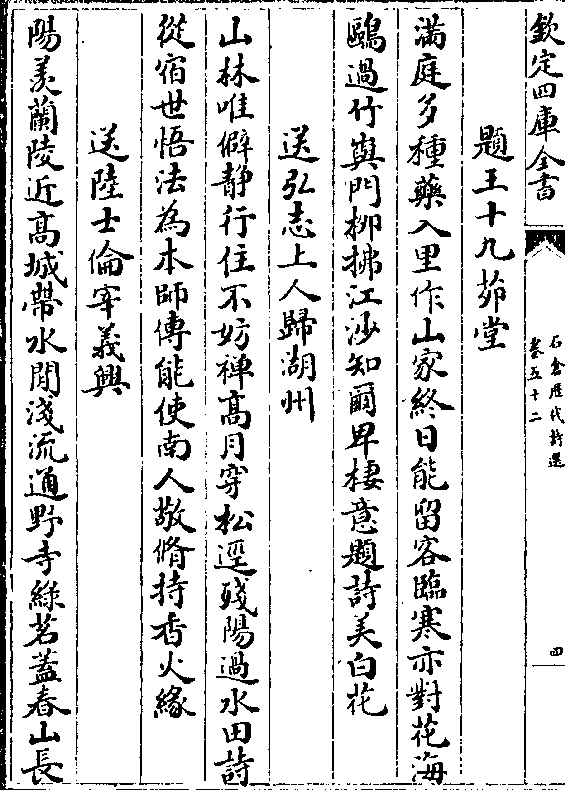 欽定四庫全書
石倉歷代詩選
卷五十二
四
題王十九茆堂
滿庭多種藥入里作山家終日能留客臨寒亦對花海
鷗過竹嶼門柳拂江沙知爾卑棲意題詩美白花
送弘志上人歸湖州
山林唯僻靜行住不妨禅高月穿松逕殘陽過水田詩
從宿世悟法為本師傳能使南人敬脩持香火緣
送陸士倫宰義興
陽羨蘭陵近高城帶水閒淺流通野寺綠茗蓋春山長